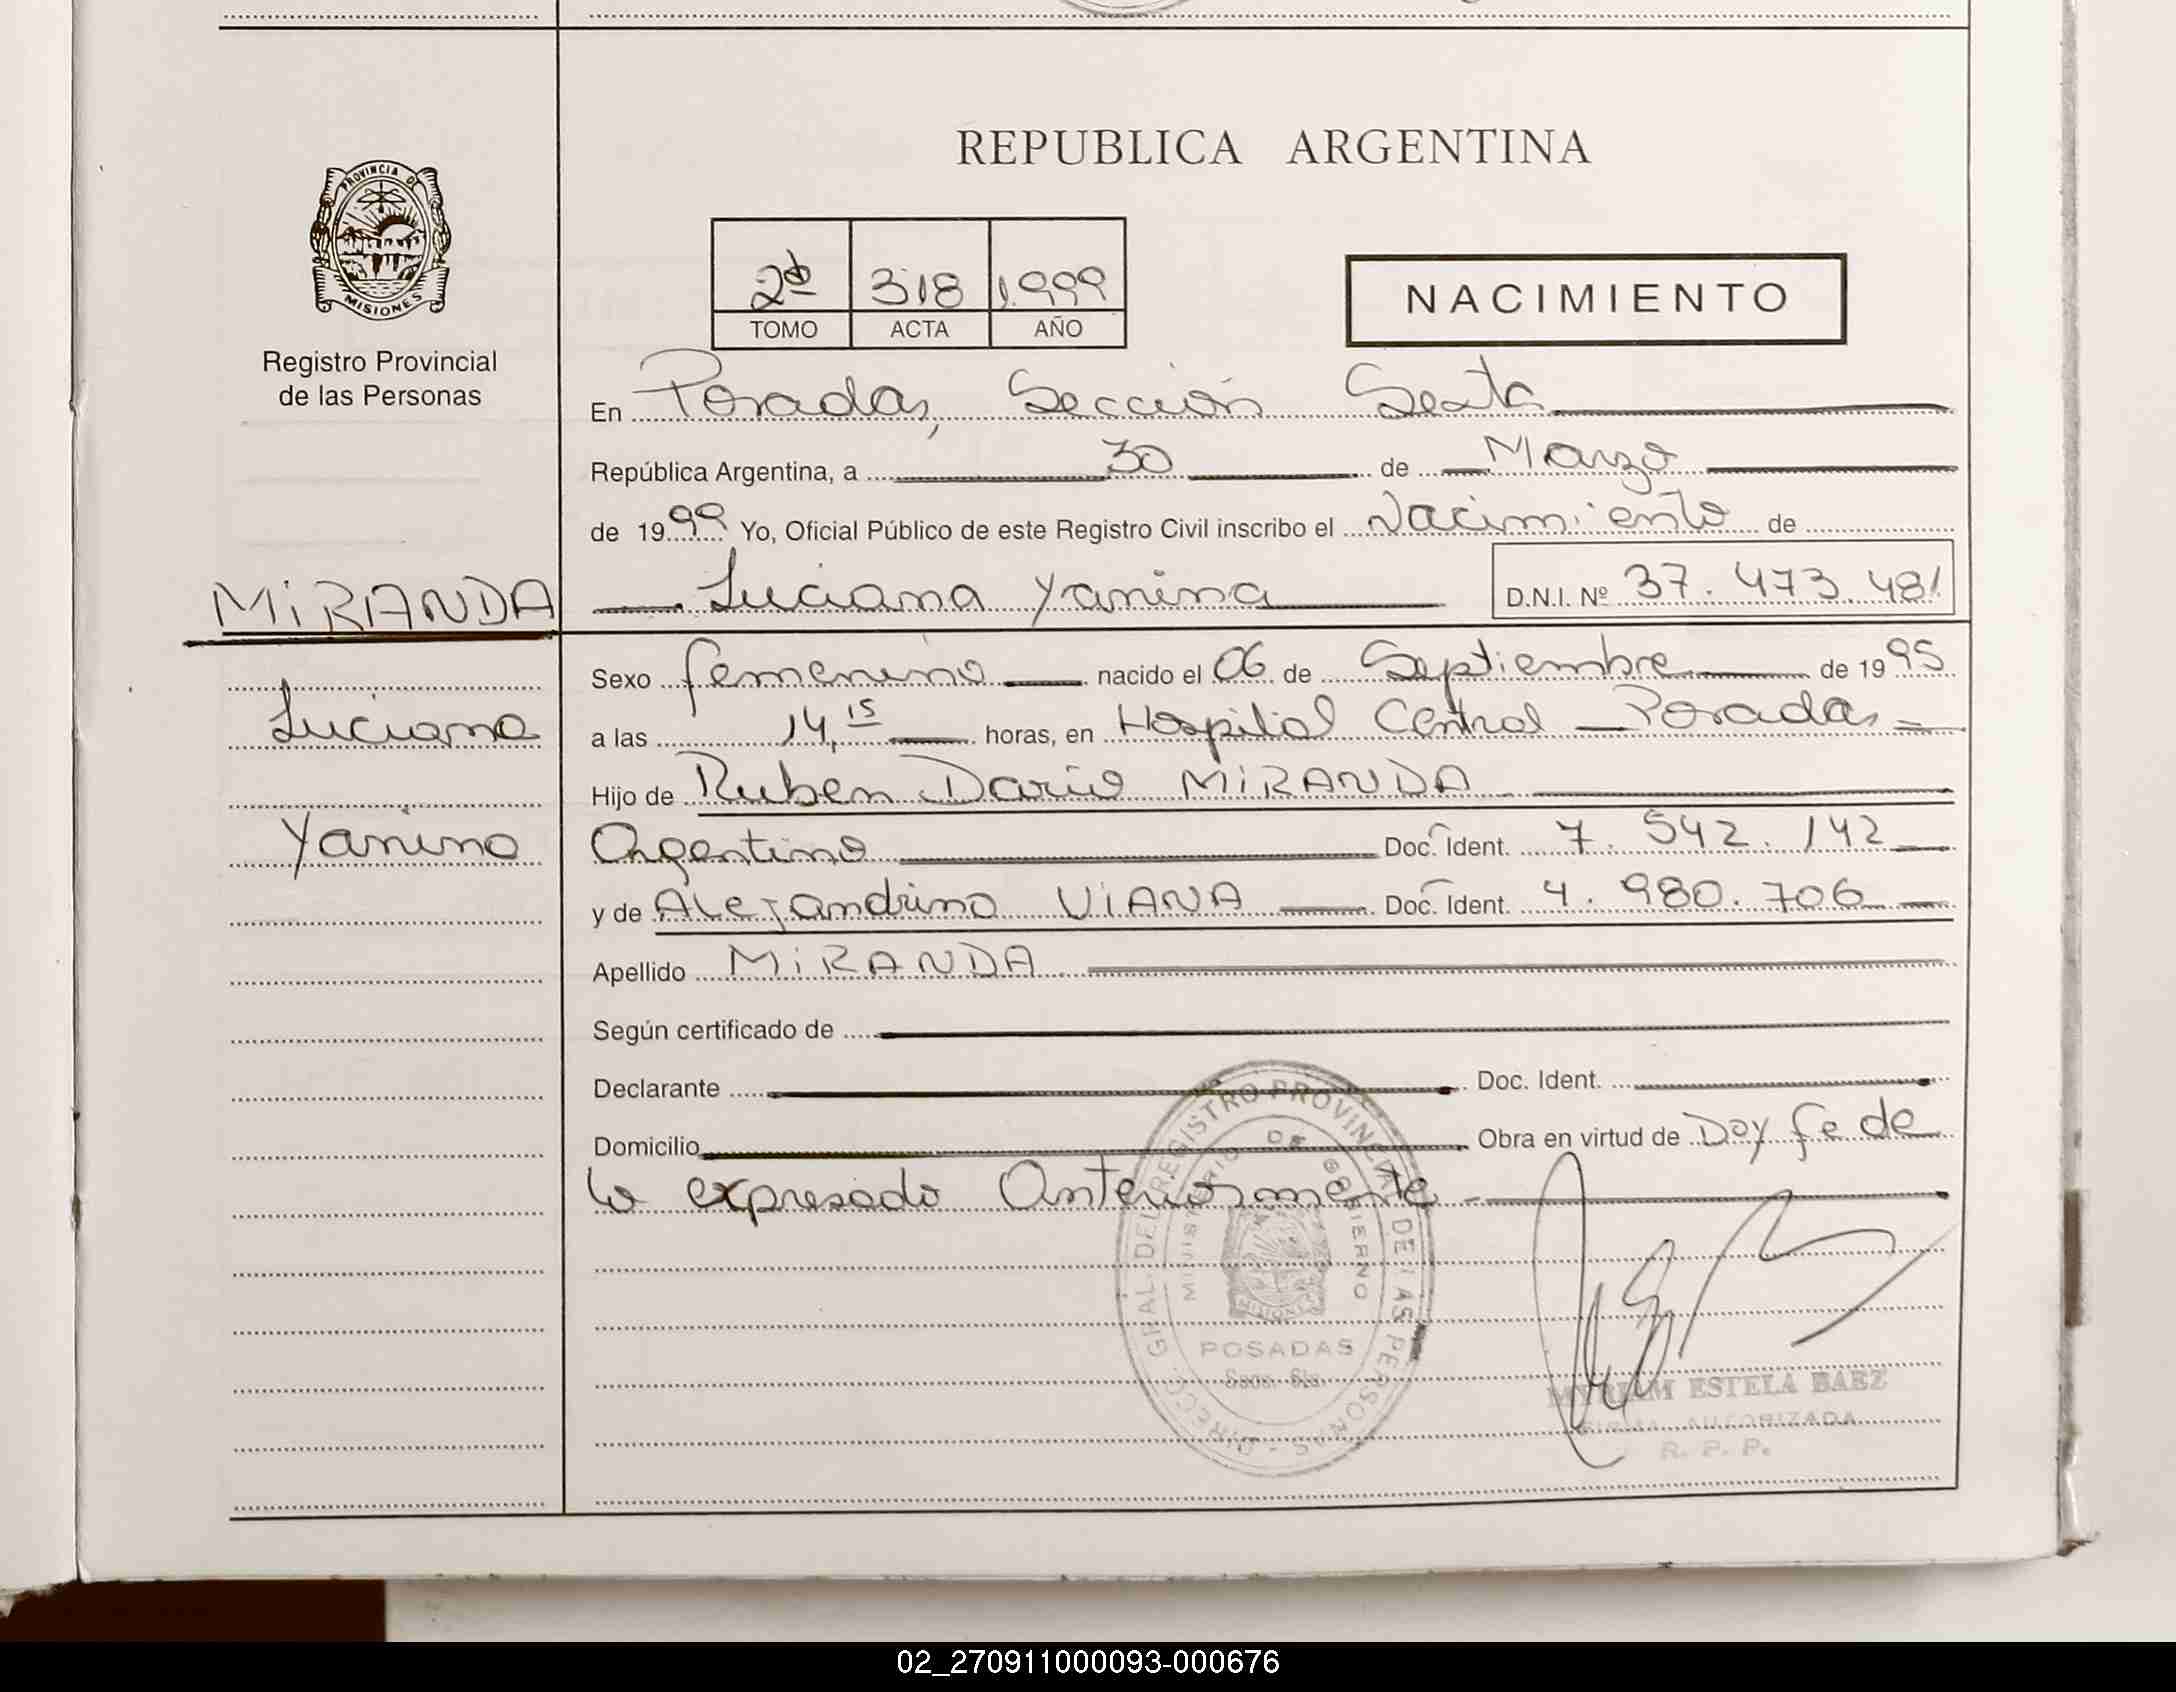 REPUBLICA ARGENTINA
PROVINCIA DE
MISIONES
Registro Provincial
de las Personas
2º 318 1.999
TOMO ACTA AÑO
NACIMIENTO
En Posadas, Sección Sexta
República Argentina, a 30 de Marzo
de 1999 Yo, Oficial Público de este Registro Civil inscribo el Nacimiento de
MiRANDA Luciana Yanina D.N.I. Nº 37.473.481
Sexo femenino nacido el 06 de Septiembre de 1995
Luciana
a las 14,15 horas, en Hospital Central Posadas
Hijo de Ruben Dario MiRANDA
Yanina
Argentino Doc. Ident. 7.542.142
y de Alejandrina ViANA Doc. Ident. 4.980.706
Apellido MiRANDA
Según certificado de
Declarante Doc. Ident.
Domicilio Obra en virtud de Doy fe de
lo expresado Anteriormente
DIRECC. GRAL. DEL REGISTRO PROVINCIAL DE LAS PERSONAS
MINISTERIO DE GOBIERNO
MISIONES
POSADAS
Secc. 6ta.
MYRIAM ESTELA BAEZ
FIRMA AUTORIZADA
R. P. P.
02_270911000093-000676